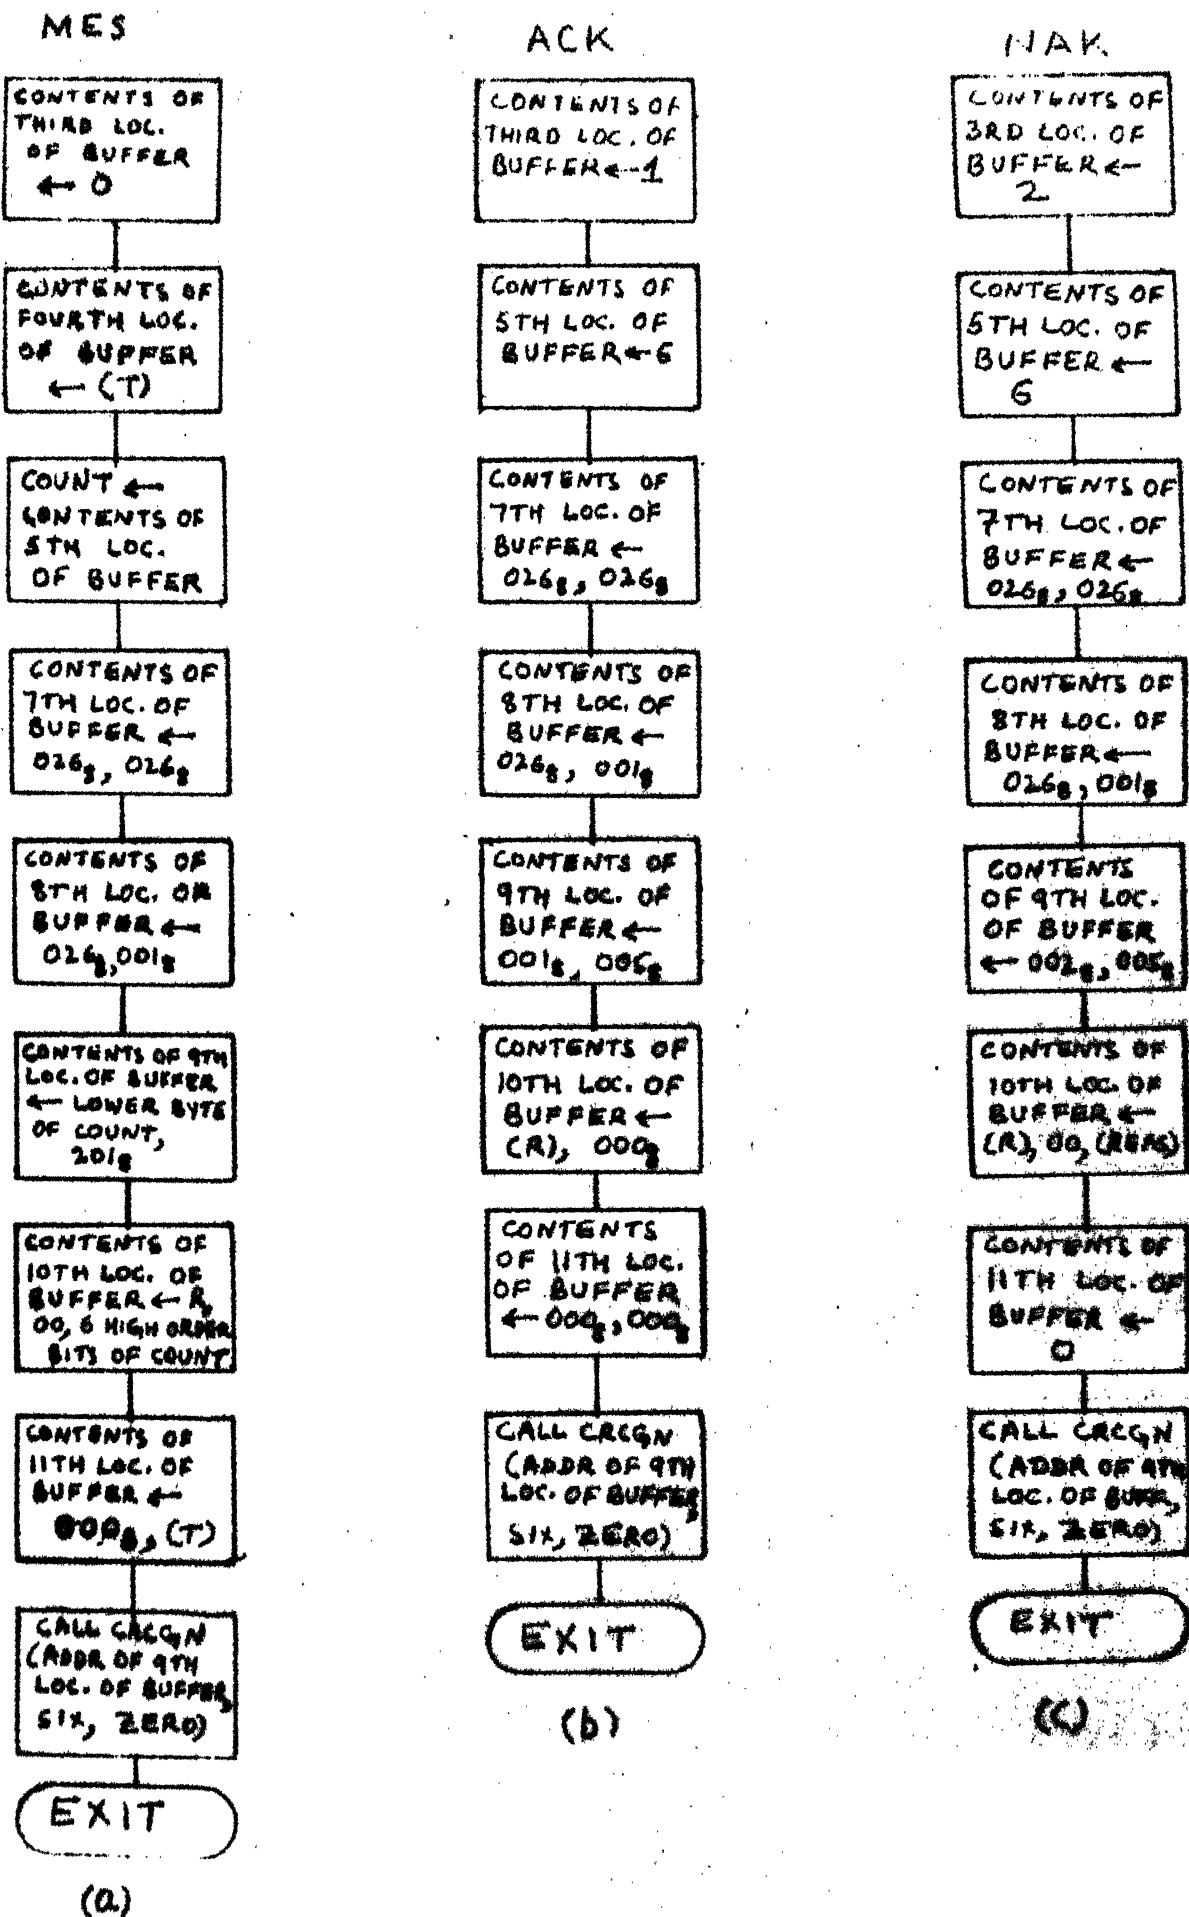 MES
CONTENTS OF
THIRD LOC.
OF BUFFER
← 0
CONTENTS OF
FOURTH LOC.
OF BUFFER
← (T)
COUNT ←
CONTENTS OF
5TH LOC.
OF BUFFER
CONTENTS OF
7TH LOC. OF
BUFFER ←
026₈, 026₈
CONTENTS OF
8TH LOC. OR
BUFFER ←
026₈, 001₈
CONTENTS OF 9TH
LOC. OF BUFFER
← LOWER BYTE
OF COUNT,
201₈
CONTENTS OF
10TH LOC. OF
BUFFER ← R,
00, 6 HIGH ORDER
BITS OF COUNT
CONTENTS OF
11TH LOC. OF
BUFFER ←
000₈, (T)
CALL CRCGN
(ADDR OF 9TH
LOC. OF BUFFER,
SIX, ZERO)
EXIT
(a)
ACK
CONTENTS OF
THIRD LOC. OF
BUFFER ← 1
CONTENTS OF
5TH LOC. OF
BUFFER ← 6
CONTENTS OF
7TH LOC. OF
BUFFER ←
026₈, 026₈
CONTENTS OF
8TH LOC. OF
BUFFER ←
026₈, 001₈
CONTENTS OF
9TH LOC. OF
BUFFER ←
001₈, 005₈
CONTENTS OF
10TH LOC. OF
BUFFER ←
(R), 000₈
CONTENTS
OF 11TH LOC.
OF BUFFER
← 000₈, 000₈
CALL CRCGN
(ADDR OF 9TH
LOC. OF BUFFER,
SIX, ZERO)
EXIT
(b)
NAK
CONTENTS OF
3RD LOC. OF
BUFFER ←
2
CONTENTS OF
5TH LOC. OF
BUFFER ←
6
CONTENTS OF
7TH LOC. OF
BUFFER ←
026₈, 026₈
CONTENTS OF
8TH LOC. OF
BUFFER ←
026₈, 001₈
CONTENTS
OF 9TH LOC.
OF BUFFER
← 002₈, 005₈
CONTENTS OF
10TH LOC. OF
BUFFER ←
(R), 00, (REAS)
CONTENTS OF
11TH LOC. OF
BUFFER ←
0
CALL CRCGN
(ADDR OF 9TH
LOC. OF BUFF,
SIX, ZERO)
EXIT
(c)